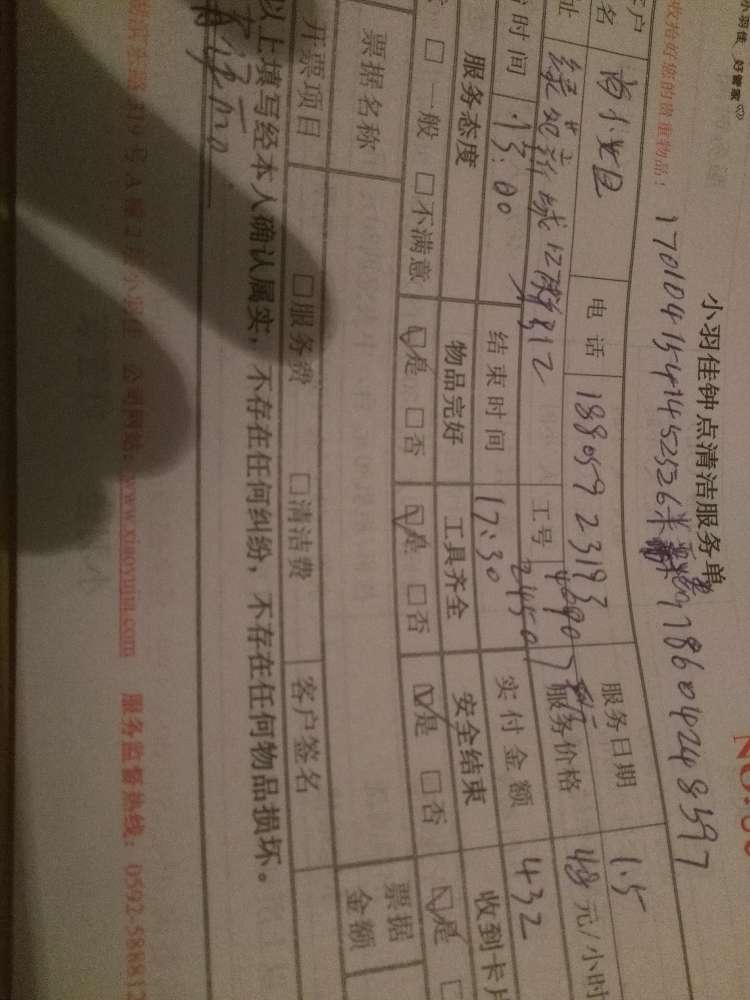 小羽佳 好管家
小羽佳钟点清洁服务单
收拾好您的贵重物品！
1701041541452526
178604248597
户
名
电话
18859223193
服务日期
1.5
址
312
工号
服务价格
48元/小时
时间
13:00
结束时间
17:30
2450
实付金额
432
服务态度
物品完好
工具齐全
安全结束
收到卡片
□一般 □不满意
☑是 □否
☑是 □否
☑是 □否
☑是
票据名称
票据
金额
开票项目
□服务费
□清洁费
客户签名
以上填写经本人确认属实，不存在任何纠纷，不存在任何物品损坏。
号A幢2
公司网站：www.xiaoyujia.com
服务监督热线：0592-588812